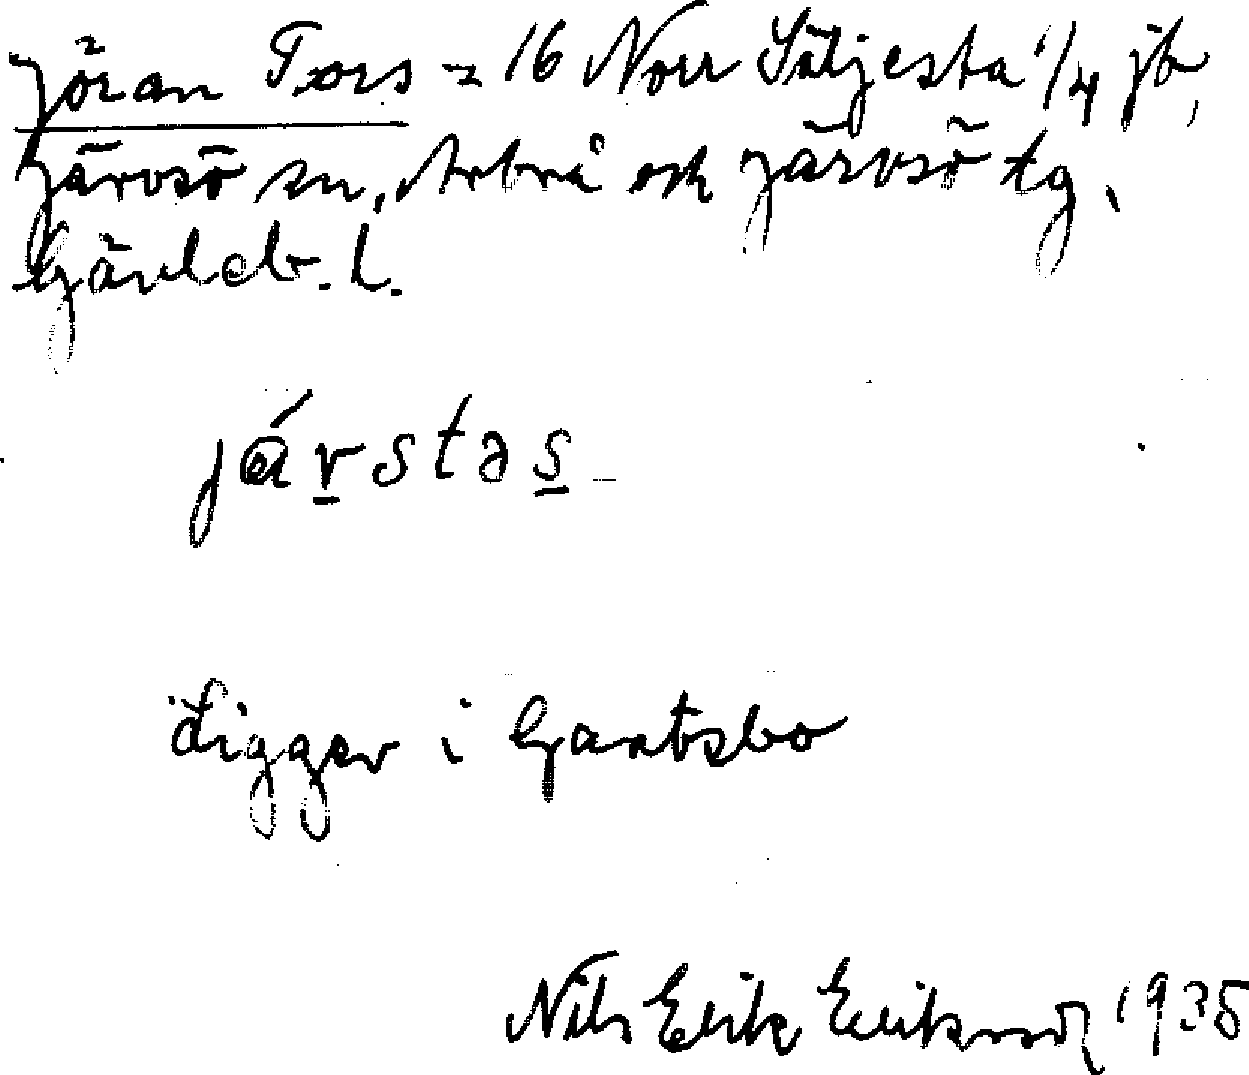 Jöran Tors = 16 Norr Säljesta 1/4 jb,
Järvsö sn, Arbrå och Järvsö tg,
Gävleb. l.
jɑ́r̲stəs̲
Ligger i Gantsbo
Nils Erik Eriksson 1935